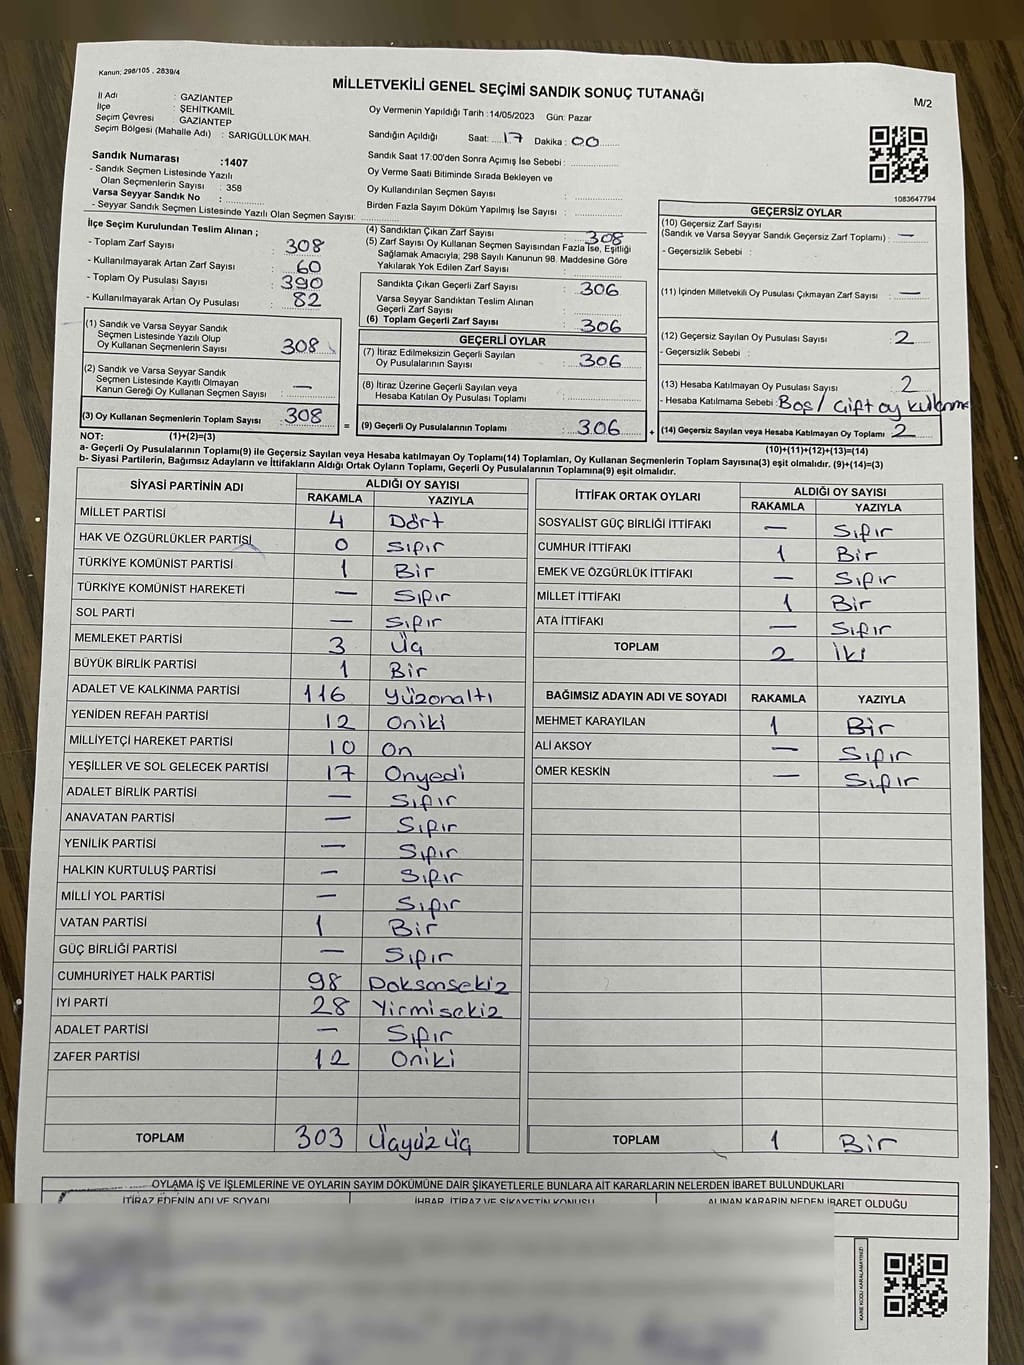 Kanun; 298/105 , 2839/4
MİLLETVEKİLİ GENEL SEÇİMİ SANDIK SONUÇ TUTANAĞI
M/2
İl Adı : GAZİANTEP
İlçe : ŞEHİTKAMİL
Seçim Çevresi : GAZİANTEP
Seçim Bölgesi (Mahalle Adı) : SARIGÜLLÜK MAH.
Sandık Numarası :1407
- Sandık Seçmen Listesinde Yazılı
Olan Seçmenlerin Sayısı : 358
Varsa Seyyar Sandık No :
- Seyyar Sandık Seçmen Listesinde Yazılı Olan Seçmen Sayısı:
Oy Vermenin Yapıldığı Tarih :14/05/2023 Gün: Pazar
Sandığın Açıldığı Saat: 17 Dakika : 00
Sandık Saat 17:00'den Sonra Açımış İse Sebebi :
Oy Verme Saati Bitiminde Sırada Bekleyen ve
Oy Kullandırılan Seçmen Sayısı :
Birden Fazla Sayım Döküm Yapılmış İse Sayısı :
1083647794
İlçe Seçim Kurulundan Teslim Alınan ;
- Toplam Zarf Sayısı : 308
- Kullanılmayarak Artan Zarf Sayısı : 60
- Toplam Oy Pusulası Sayısı : 390
- Kullanılmayarak Artan Oy Pusulası : 82
(1) Sandık ve Varsa Seyyar Sandık
Seçmen Listesinde Yazılı Olup
Oy Kullanan Seçmenlerin Sayısı : 308
(2) Sandık ve Varsa Seyyar Sandık
Seçmen Listesinde Kayıtlı Olmayan
Kanun Gereği Oy Kullanan Seçmen Sayısı : —
(3) Oy Kullanan Seçmenlerin Toplam Sayısı : 308
(4) Sandıktan Çıkan Zarf Sayısı : 308
(5) Zarf Sayısı Oy Kullanan Seçmen Sayısından Fazla İse, Eşitliği
Sağlamak Amacıyla; 298 Sayılı Kanunun 98. Maddesine Göre
Yakılarak Yok Edilen Zarf Sayısı :
Sandıkta Çıkan Geçerli Zarf Sayısı : 306
Varsa Seyyar Sandıktan Teslim Alınan
Geçerli Zarf Sayısı :
(6) Toplam Geçerli Zarf Sayısı : 306
GEÇERLİ OYLAR
(7) İtiraz Edilmeksizin Geçerli Sayılan
Oy Pusulalarının Sayısı : 306
(8) İtiraz Üzerine Geçerli Sayılan veya
Hesaba Katılan Oy Pusulası Toplamı :
= (9) Geçerli Oy Pusulalarının Toplamı : 306
GEÇERSİZ OYLAR
(10) Geçersiz Zarf Sayısı
(Sandık ve Varsa Seyyar Sandık Geçersiz Zarf Toplamı) : —
- Geçersizlik Sebebi :
(11) İçinden Milletvekili Oy Pusulası Çıkmayan Zarf Sayısı : —
(12) Geçersiz Sayılan Oy Pusulası Sayısı : 2
- Geçersizlik Sebebi :
(13) Hesaba Katılmayan Oy Pusulası Sayısı : 2
- Hesaba Katılmama Sebebi : Boş / Çift oy kullanma
+ (14) Geçersiz Sayılan veya Hesaba Katılmayan Oy Toplamı : 2
NOT: (1)+(2)=(3)
(10)+(11)+(12)+(13)=(14)
a- Geçerli Oy Pusulalarının Toplamı(9) ile Geçersiz Sayılan veya Hesaba katılmayan Oy Toplamı(14) Toplamları, Oy Kullanan Seçmenlerin Toplam Sayısına(3) eşit olmalıdır. (9)+(14)=(3)
b- Siyasi Partilerin, Bağımsız Adayların ve İttifakların Aldığı Ortak Oyların Toplamı, Geçerli Oy Pusulalarının Toplamına(9) eşit olmalıdır.
SİYASİ PARTİNİN ADI ALDIĞI OY SAYISI
RAKAMLA YAZIYLA
MİLLET PARTİSİ 4 Dört
HAK VE ÖZGÜRLÜKLER PARTİSİ 0 Sıfır
TÜRKİYE KOMÜNİST PARTİSİ 1 Bir
TÜRKİYE KOMÜNİST HAREKETİ — Sıfır
SOL PARTİ — Sıfır
MEMLEKET PARTİSİ 3 Üç
BÜYÜK BİRLİK PARTİSİ 1 Bir
ADALET VE KALKINMA PARTİSİ 116 Yüzonaltı
YENİDEN REFAH PARTİSİ 12 Oniki
MİLLİYETÇİ HAREKET PARTİSİ 10 On
YEŞİLLER VE SOL GELECEK PARTİSİ 17 Onyedi
ADALET BİRLİK PARTİSİ — Sıfır
ANAVATAN PARTİSİ — Sıfır
YENİLİK PARTİSİ — Sıfır
HALKIN KURTULUŞ PARTİSİ — Sıfır
MİLLİ YOL PARTİSİ — Sıfır
VATAN PARTİSİ 1 Bir
GÜÇ BİRLİĞİ PARTİSİ — Sıfır
CUMHURİYET HALK PARTİSİ 98 Doksansekiz
İYİ PARTİ 28 Yirmisekiz
ADALET PARTİSİ — Sıfır
ZAFER PARTİSİ 12 Oniki
TOPLAM 303 Üçyüz üç
İTTİFAK ORTAK OYLARI ALDIĞI OY SAYISI
RAKAMLA YAZIYLA
SOSYALİST GÜÇ BİRLİĞİ İTTİFAKI — Sıfır
CUMHUR İTTİFAKI 1 Bir
EMEK VE ÖZGÜRLÜK İTTİFAKI — Sıfır
MİLLET İTTİFAKI 1 Bir
ATA İTTİFAKI — Sıfır
TOPLAM 2 İki
BAĞIMSIZ ADAYIN ADI VE SOYADI RAKAMLA YAZIYLA
MEHMET KARAYILAN 1 Bir
ALİ AKSOY — Sıfır
ÖMER KESKİN — Sıfır
TOPLAM 1 Bir
OYLAMA İŞ VE İŞLEMLERİNE VE OYLARIN SAYIM DÖKÜMÜNE DAİR ŞİKAYETLERLE BUNLARA AİT KARARLARIN NELERDEN İBARET BULUNDUKLARI
İTİRAZ EDENİN ADI VE SOYADI İHBAR, İTİRAZ VE ŞİKAYETİN KONUSU ALINAN KARARIN NEDEN İBARET OLDUĞU
KARE KODU KARALAMAYINIZ!